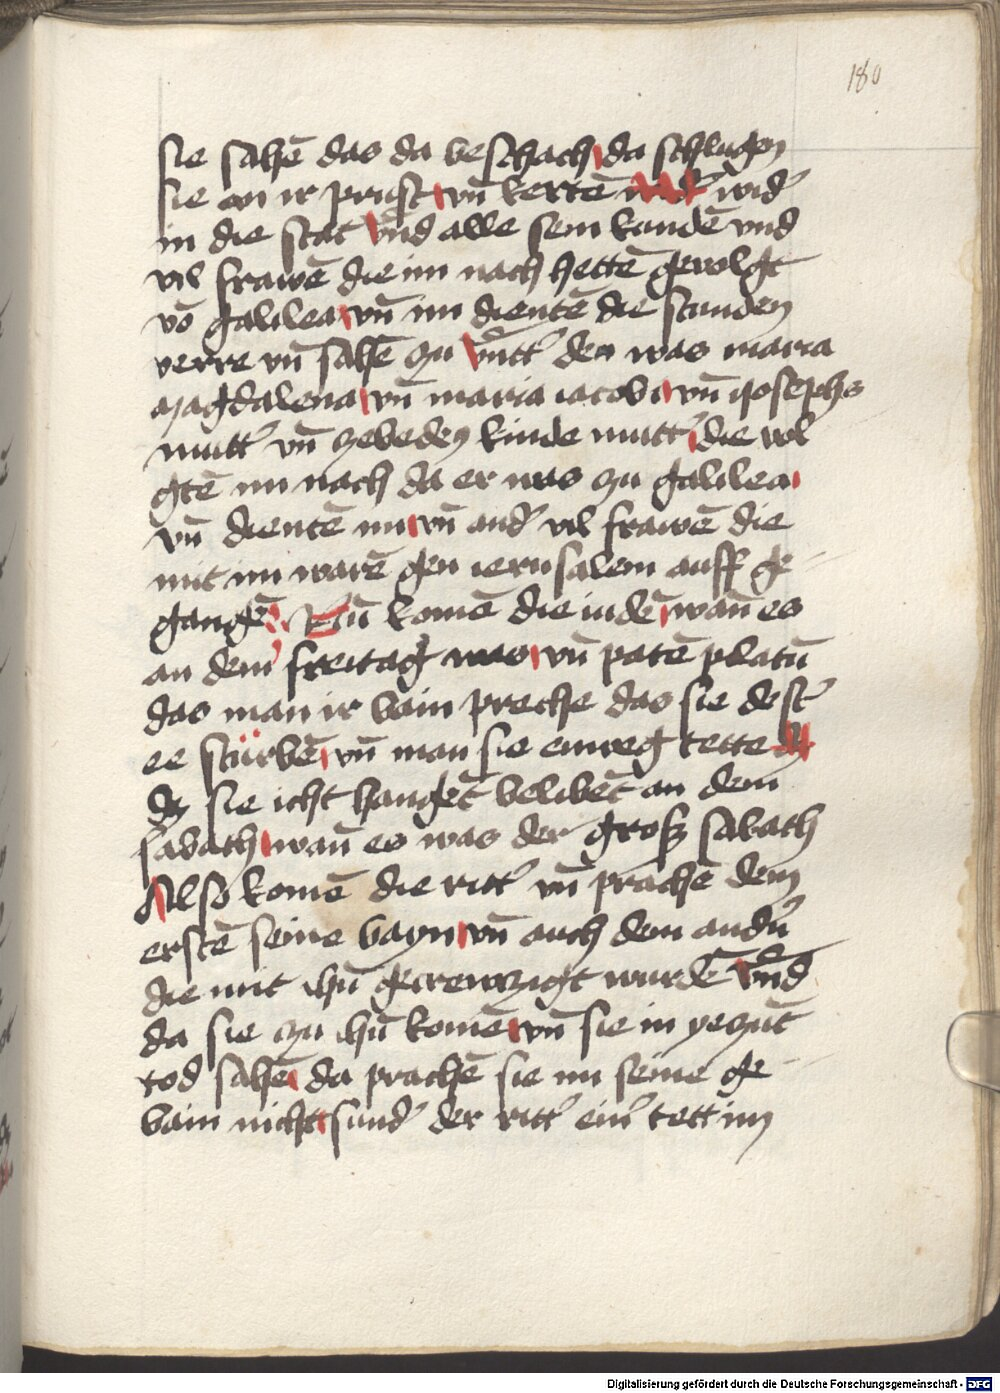 180
sie sahē das da beschach da schlugen
sie an ir prust vn̄ kertē wid᷑
in die stat vn̄d alle sein kundē vnd
vil frawē die im nach hettē geuolgt
vō galilea vn̄ im dientē die stunden
verre vn̄ sahē zu vn̄tt᷑ den was maria
magdalena vn̄ maria iacobi vn̄ iosephs
mutt᷑ vn̄ zebeden kinde mutt᷑ die vol
gtē im nach da er was zu galilea
vn̄ dientē im vn̄ and᷑ vil frawē die
mit im warē gen ierusalem auff ge-
gangē Nū komē die iudē wan̄ es
an dem freitag was vn̄ patē pilatū
das man ir bain preche das sie dest᷑
ee stürbē vn̄ man sie einweg tette
dz sie icht hangēt belibēt an dem
sabath wan̄ es was der groß sabath
Also komē die ritt᷑ vn̄ prachē dem
erstē seine bayn vn̄ auch dem andn̄
die mit ihū gecrewzigt wurdē vn̄d
da sie zu ihū komē vn̄ sie in yezūt
tod sahē da prachē sie im seine ge-
bain nicht sund᷑ der ritt᷑ ein᷑ tett im
Digitalisierung gefördert durch die Deutsche Forschungsgemeinschaft - DFG